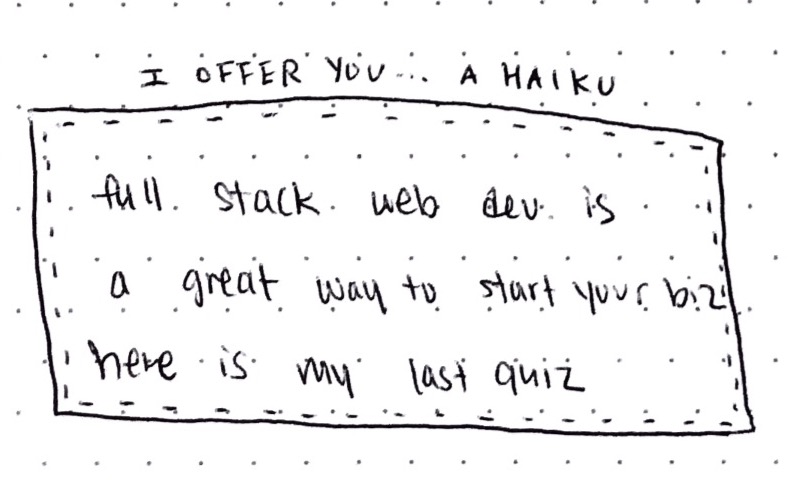 I OFFER YOU... A HAIKU
full stack web dev is
a great way to start your biz
here is my last quiz